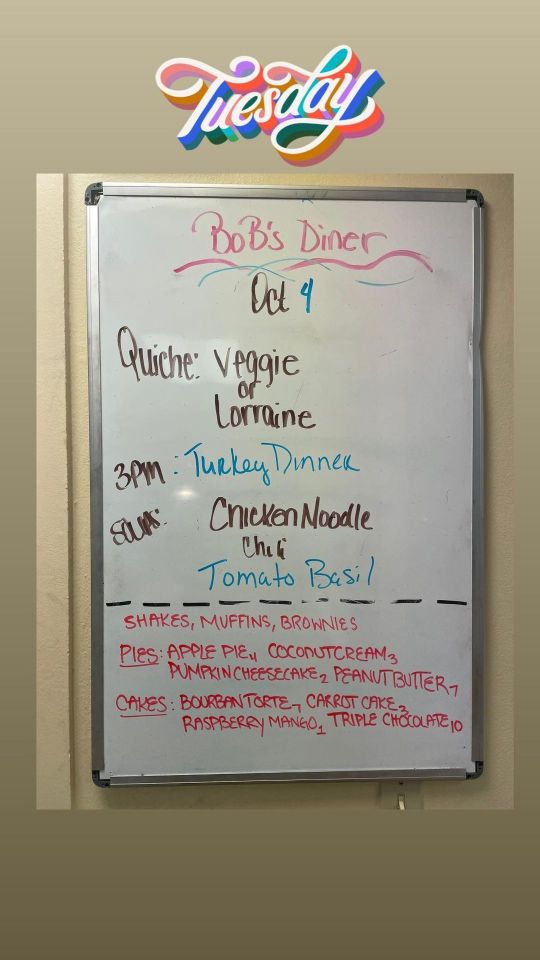 Tuesday
BoB's Diner
Oct 4
Quiche: Veggie
or
Lorraine
3PM: Turkey Dinner
Soups: Chicken Noodle
Chili
Tomato Basil
SHAKES, MUFFINS, BROWNIES
PIES: APPLE PIE4 COCONUTCREAM3
PUMPKIN CHEESECAKE2 PEANUT BUTTER7
CAKES: BOURBAN TORTE7 CARROT CAKE2
RASPBERRY MANGO1 TRIPLE CHOCOLATE10